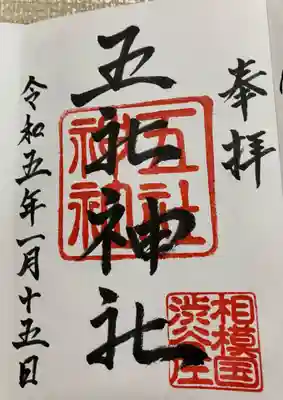 奉拝
五社神社
令和五年一月十五日
五社
相模国
渋谷庄